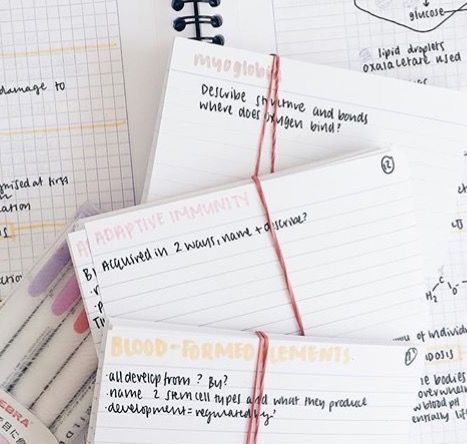 glucose
lipid droplets
oxaloacetate used
damage to
myoglobin
Describe structure and bonds
where does oxygen bind?
12
ADAPTIVE IMMUNITY
Acquired in 2 ways, name + describe?
BLOOD-FORMED ELEMENTS
· all develop from? By?
· name 2 stem cell types and what they produce
· development = regulated by?
of individ
DOSIS
bodies
H₂C
ZEBRA